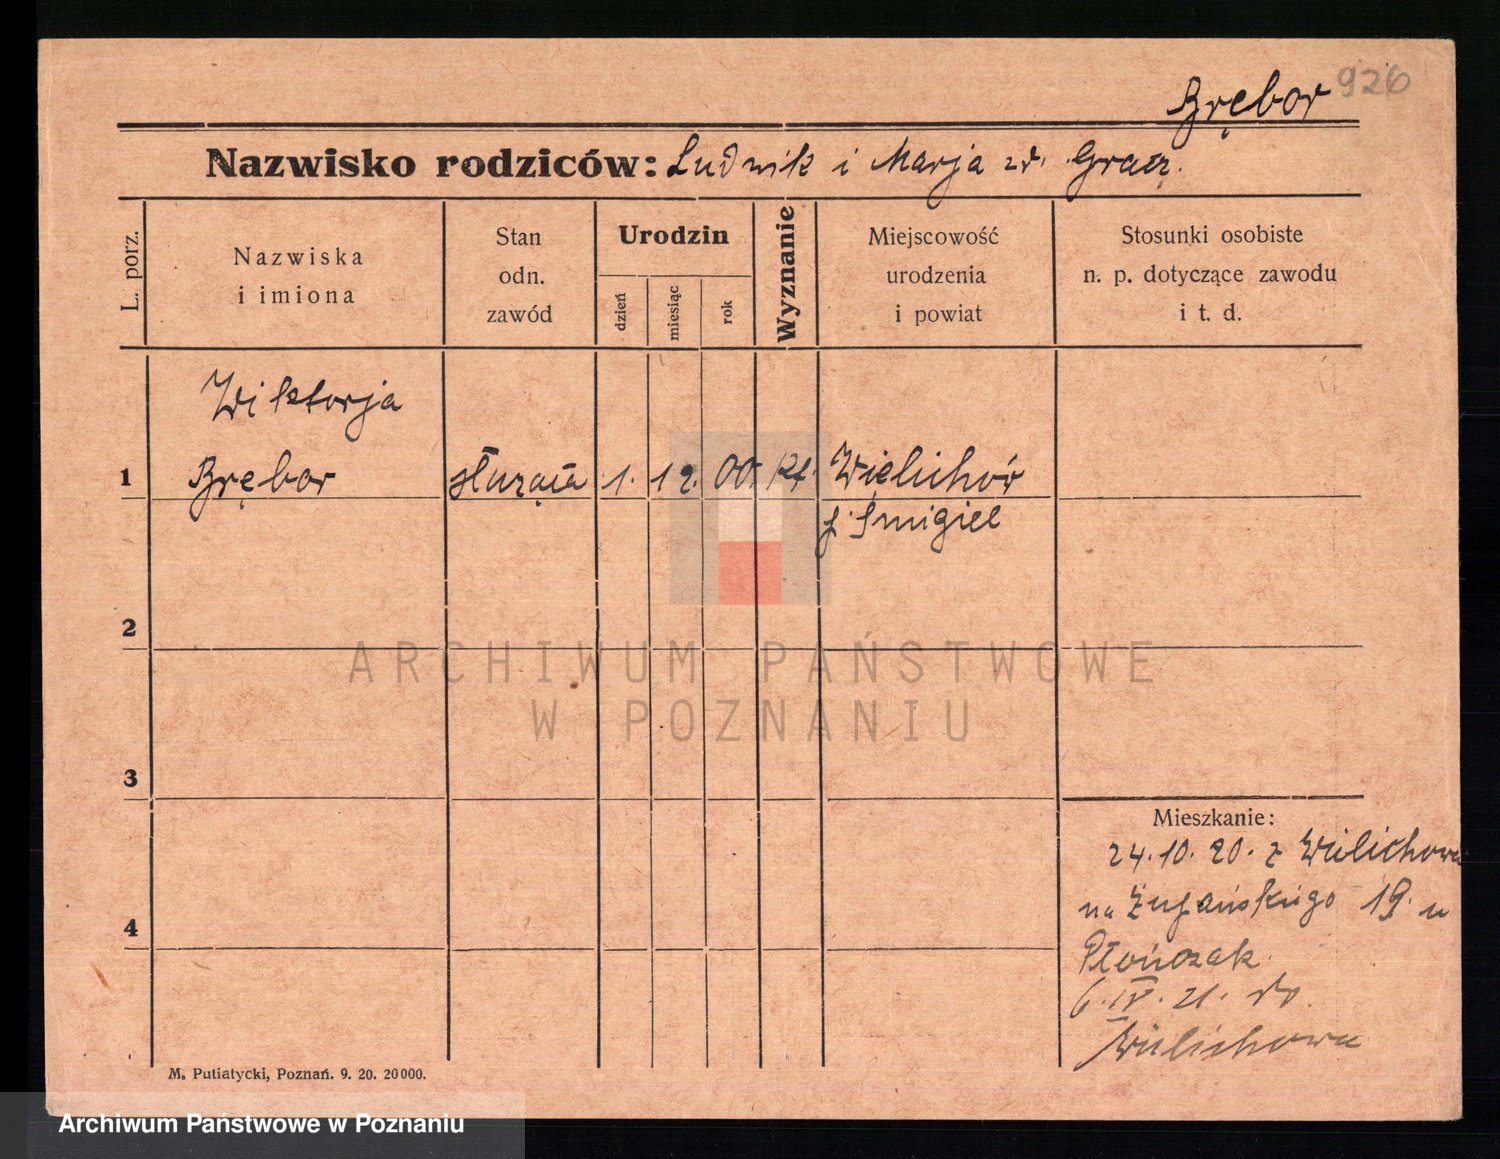 Brębor 926
Nazwisko rodziców: Ludwik i Marja zd. Gracz.
L. porz.
Nazwiska
i imiona
Stan
odn.
zawód
Urodzin
dzień
miesiąc
rok
Wyznanie
Miejscowość
urodzenia
i powiat
Stosunki osobiste
n. p. dotyczące zawodu
i t. d.
Wiktorja
1 Brębor służąca 1. 12. 00. kt. Wielichów
p. Śmigiel
2
3
4
Mieszkanie:
24. 10. 20. z Wielichowa
na Żupańskiego 19. u
Płończak
6. IV. 21. do
Wielichowa
M. Putiatycki, Poznań. 9. 20. 20000.
ARCHIWUM PAŃSTWOWE
W POZNANIU
Archiwum Państwowe w Poznaniu